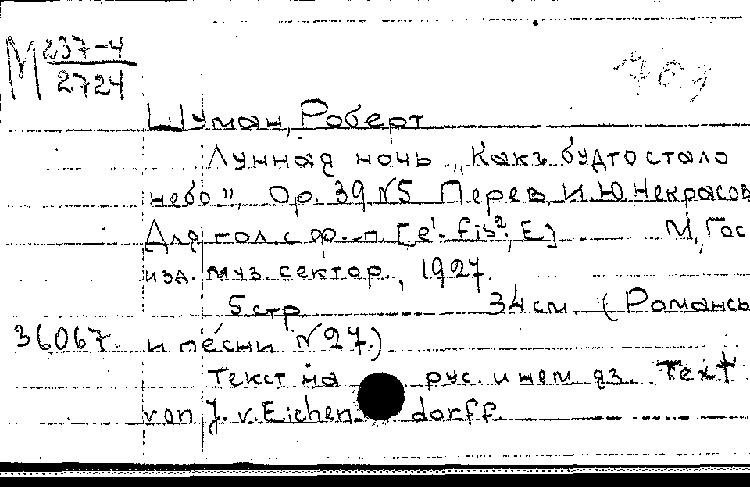 М 237-4
2724
Шуман, Роберт
Лунная ночь „Какъ будто стало
небо", Ор. 39 N5 Перев. И.Ю. Некрасов
Для гол. с ф.-п. [e¹-fis², E] М, Гос
изд. муз. сектор, 1927.
5 стр 34 см. (Романсы
36067 и песни N 27.)
Текст на рус. и нем яз. Text
von J. v. Eichendorff.